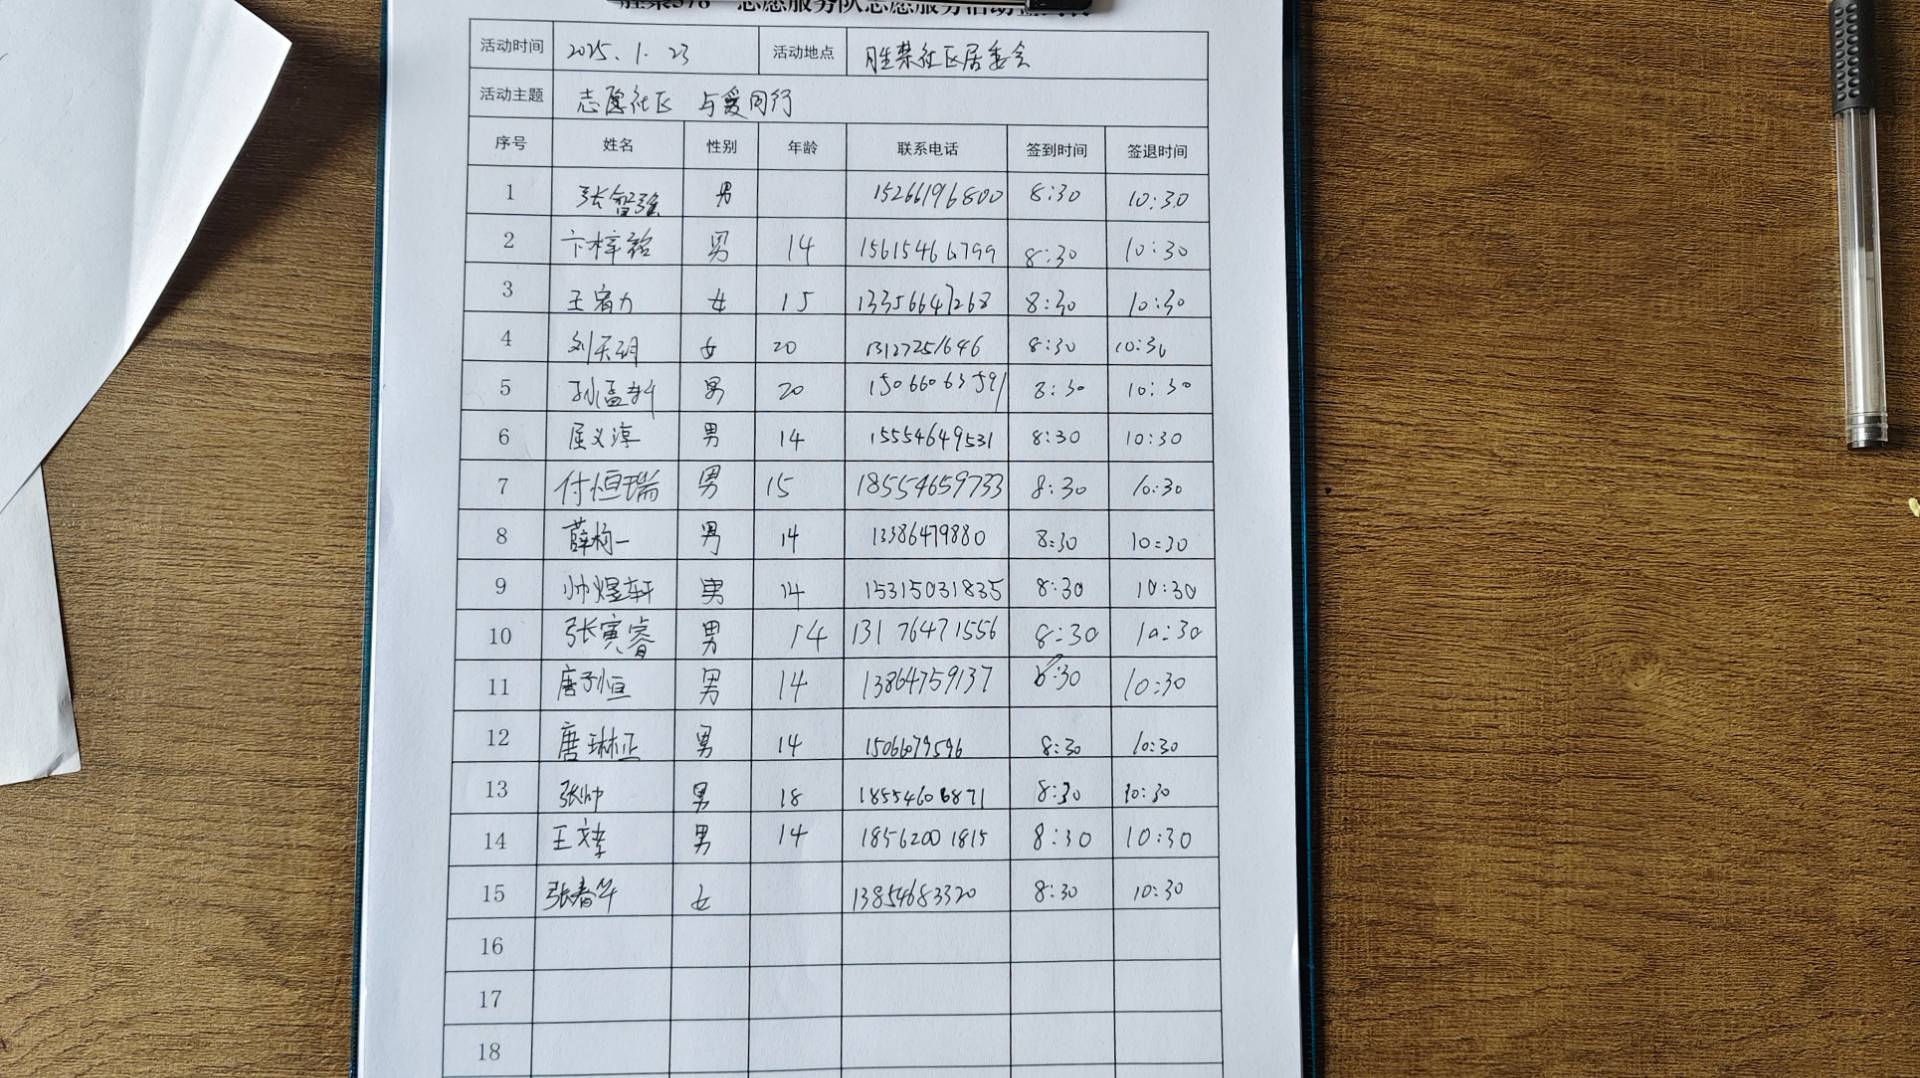 志愿服务队志愿服务活动
活动时间 2025.1.23 活动地点 胜荣社区居委会
活动主题 志愿社区 与爱同行
序号 姓名 性别 年龄 联系电话 签到时间 签退时间
1 张智强 男 15266196800 8:30 10:30
2 卞梓铭 男 14 15615466799 8:30 10:30
3 王宥力 女 15 13356647268 8:30 10:30
4 刘天玥 女 20 13127251646 8:30 10:30
5 孙孟轩 男 20 15066063591 8:30 10:30
6 屈义淳 男 14 15554649531 8:30 10:30
7 付恒瑞 男 15 18554659733 8:30 10:30
8 薛枸一 男 14 13386479880 8:30 10:30
9 帅煜轩 男 14 15315031835 8:30 10:30
10 张寅睿 男 14 131 76471556 8:30 10:30
11 唐子恒 男 14 13864759137 8:30 10:30
12 唐琳正 男 14 15066079596 8:30 10:30
13 张帅 男 18 18554606871 8:30 10:30
14 王文孝 男 14 1856200 1815 8:30 10:30
15 张春华 女 13854683320 8:30 10:30
16
17
18